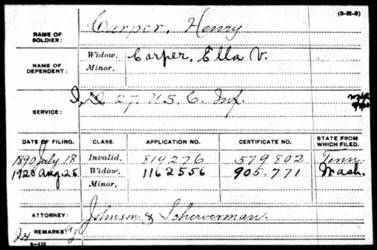 (3-312)
NAME OF SOLDIER: Carper, Henry
NAME OF DEPENDENT: Widow, Carper, Ella V.
Minor,
SERVICE: I, D 27, U.S.C. Inf.
DATE OF FILING. CLASS. APPLICATION NO. CERTIFICATE NO. STATE FROM WHICH FILED.
1890 July 18 Invalid, 819276 579802 Tenn
1920 Aug. 25 Widow, 1162556 905.771 Wash.
Minor,
ATTORNEY: Johnson &
REMARKS: